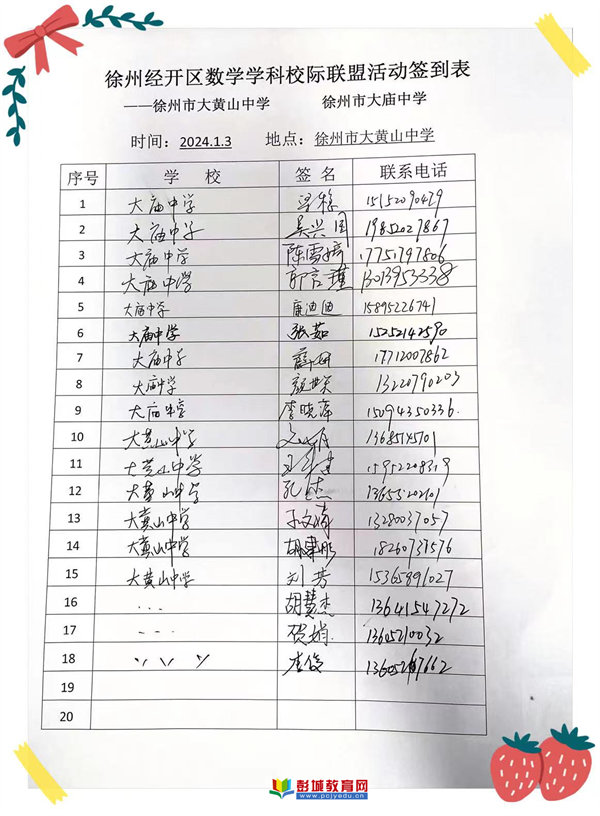 徐州经开区数学学科校际联盟活动签到表
——徐州市大黄山中学 徐州市大庙中学
时间：2024.1.3 地点：徐州市大黄山中学
序号 学 校 签 名 联系电话
1 大庙中学 15152090479
2 大庙中学 吴兴国 19852027867
3 大庙中学 陈雪婷 17751797806
4 大庙中学 郭言瑾 13013953338
5 大庙中学 康迪迪 15895226741
6 大庙中学 张茹 15252142590
7 大庙中学 薛 17712007862
8 大庙中学 13220790203
9 大庙中学 李晓萍 15094350336.
10 大黄山中学
11 大黄山中学 15952208319
12 大黄山中学 孔杰 13655202101
13 大黄山中学 孙文清 13280037057
14 大黄山中学 胡 18260737576
15 大黄山中学 刘芳 15365891027
16 ... 胡慧杰 13641547272
17 ... 贺娟 13605210032
18 李俊
19
20
彭城教育网
www.pcjyedu.cn